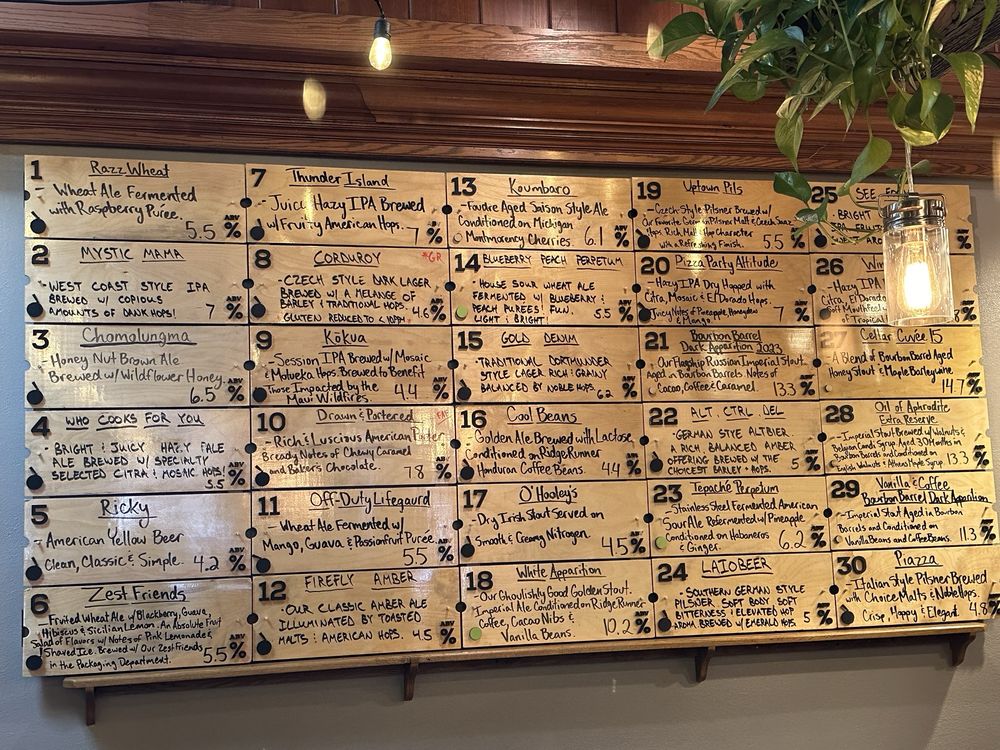 1 Razz Wheat
- Wheat Ale Fermented
with Raspberry Puree.
5.5 ABV %
2 MYSTIC MAMA
- WEST COAST STYLE IPA
BREWED W/ COPIOUS
AMOUNTS OF DANK HOPS!
7 ABV %
3 Chomolungma
- Honey Nut Brown Ale
Brewed w/Wildflower Honey.
6.5 ABV %
4 WHO COOKS FOR YOU
- BRIGHT & JUICY HAZY PALE
ALE BREWED W/ SPECIALTY
SELECTED CITRA & MOSAIC HOPS!
5.5 ABV %
5 Ricky
- American Yellow Beer
Clean, Classic & Simple.
4.2 ABV %
6 Zest Friends
- Fruited Wheat Ale w/Blackberry, Guava,
Hibiscus & Sicilian Lemon. An Absolute Fruit
Salad of Flavors w/ Notes of Pink Lemonade &
Shaved Ice. Brewed w/ Our Zest Friends
in the Packaging Department.
5.5 ABV %
7 Thunder Island
- Juicy Hazy IPA Brewed
w/Fruity American Hops.
7 ABV %
8 CORDUROY *GR
- CZECH STYLE DARK LAGER
BREWED W/ A MELANGE OF
BARLEY & TRADITIONAL HOPS
GLUTEN REDUCED TO <10PPM
4.6 ABV %
9 Kokua
- Session IPA Brewed w/ Mosaic
& Motueka Hops. Brewed to Benefit
Those Impacted by the
Maui Wildfires.
4.4 ABV %
10 Drawn & Portered
- Rich & Luscious American Porter
Bready Notes of Chewy Caramel
and Baker's Chocolate.
7.8 ABV %
11 Off-Duty Lifegaurd
- Wheat Ale Fermented w/
Mango, Guava & Passionfruit Puree.
5.5 ABV %
12 FIREFLY AMBER
- OUR CLASSIC AMBER ALE
ILLUMINATED BY TOASTED
MALTS & AMERICAN HOPS.
4.5 ABV %
13 Koumbaro
- Foudre Aged Saison Style Ale
Conditioned on Michigan
Montmorency Cherries.
6.1 ABV %
14 BLUEBERRY PEACH PERPETUM
- HOUSE SOUR WHEAT ALE
FERMENTED W/ BLUEBERRY &
PEACH PUREES! FUN,
LIGHT & BRIGHT!
5.5 ABV %
15 GOLD DENIM
- TRADITIONAL DORTMUNDER
STYLE LAGER RICH & GRAINY
BALANCED BY NOBLE HOPS.
6.2 ABV %
16 Cool Beans
- Golden Ale Brewed with Lactose
Conditioned on Ridge Runner
Honduran Coffee Beans.
4.4 ABV %
17 O'Hooley's
- Dry Irish Stout Served on
Smooth & Creamy Nitrogen.
4.5 ABV %
18 White Apparition
- Our Ghoulishly Good Golden Stout.
Imperial Ale Conditioned on Ridge Runner
Coffee, Cacao Nibs &
Vanilla Beans.
10.2 ABV %
19 Uptown Pils
- Czech-Style Pilsner Brewed w/
Our Favorite German Pilsner Malt & Czech Saaz
Hops. Rich Malt & Hop Character
with a Refreshing Finish.
5.5 ABV %
20 Pizza Party Altitude
- Hazy IPA Dry Hopped with
Citra, Mosaic & El Dorado Hops.
Juicy Notes of Pineapple, Honeydew
& Mango.
7 ABV %
21 Bourbon Barrel
Dark Apparition 2023
- Our Flagship Russian Imperial Stout
Aged in Bourbon Barrels. Notes of
Cocoa, Coffee & Caramel.
13.3 ABV %
22 ALT. CTRL. DEL
- GERMAN STYLE ALTBIER,
A RICH, BALANCED AMBER
OFFERING BREWED W/ THE
CHOICEST BARLEY & HOPS.
5 ABV %
23 Tepaché Perpetum
- Stainless Steel Fermented American
Sour Ale Refermented w/ Pineapple
Conditioned on Habaneros
& Ginger.
6.2 ABV %
24 LAJOBEER
- SOUTHERN GERMAN STYLE
PILSNER SOFT BODY SOFT
BITTERNESS & ELEVATED HOP
AROMA. BREWED W/ EMERALD HOPS.
5 ABV %
25 SEE
- BRIGHT
%
26
- Hazy IPA
Citra, El Dorado
Soft Mouthfeel
of Tropical
8 %
27 Cellar Cuvée 15
- A Blend of Bourbon Barrel Aged
Honey Stout & Maple Barleywine.
14.7 ABV %
28 Oil of Aphrodite
Extra Reserve
- Imperial Stout Brewed w/Walnuts &
Belgian Candi Syrup. Aged 30 Months in
Bourbon Barrels and Conditioned on
English Walnuts & Athens Maple Syrup.
13.3 ABV %
29 Vanilla & Coffee
Bourbon Barrel Dark Apparition
- Imperial Stout Aged in Bourbon
Barrels and Conditioned on
Vanilla Beans and Coffee Beans.
11.3 ABV %
30 Piazza
- Italian Style Pilsner Brewed
with Choice Malts & Noble Hops.
Crisp, Hoppy & Elegant.
4.8 ABV %